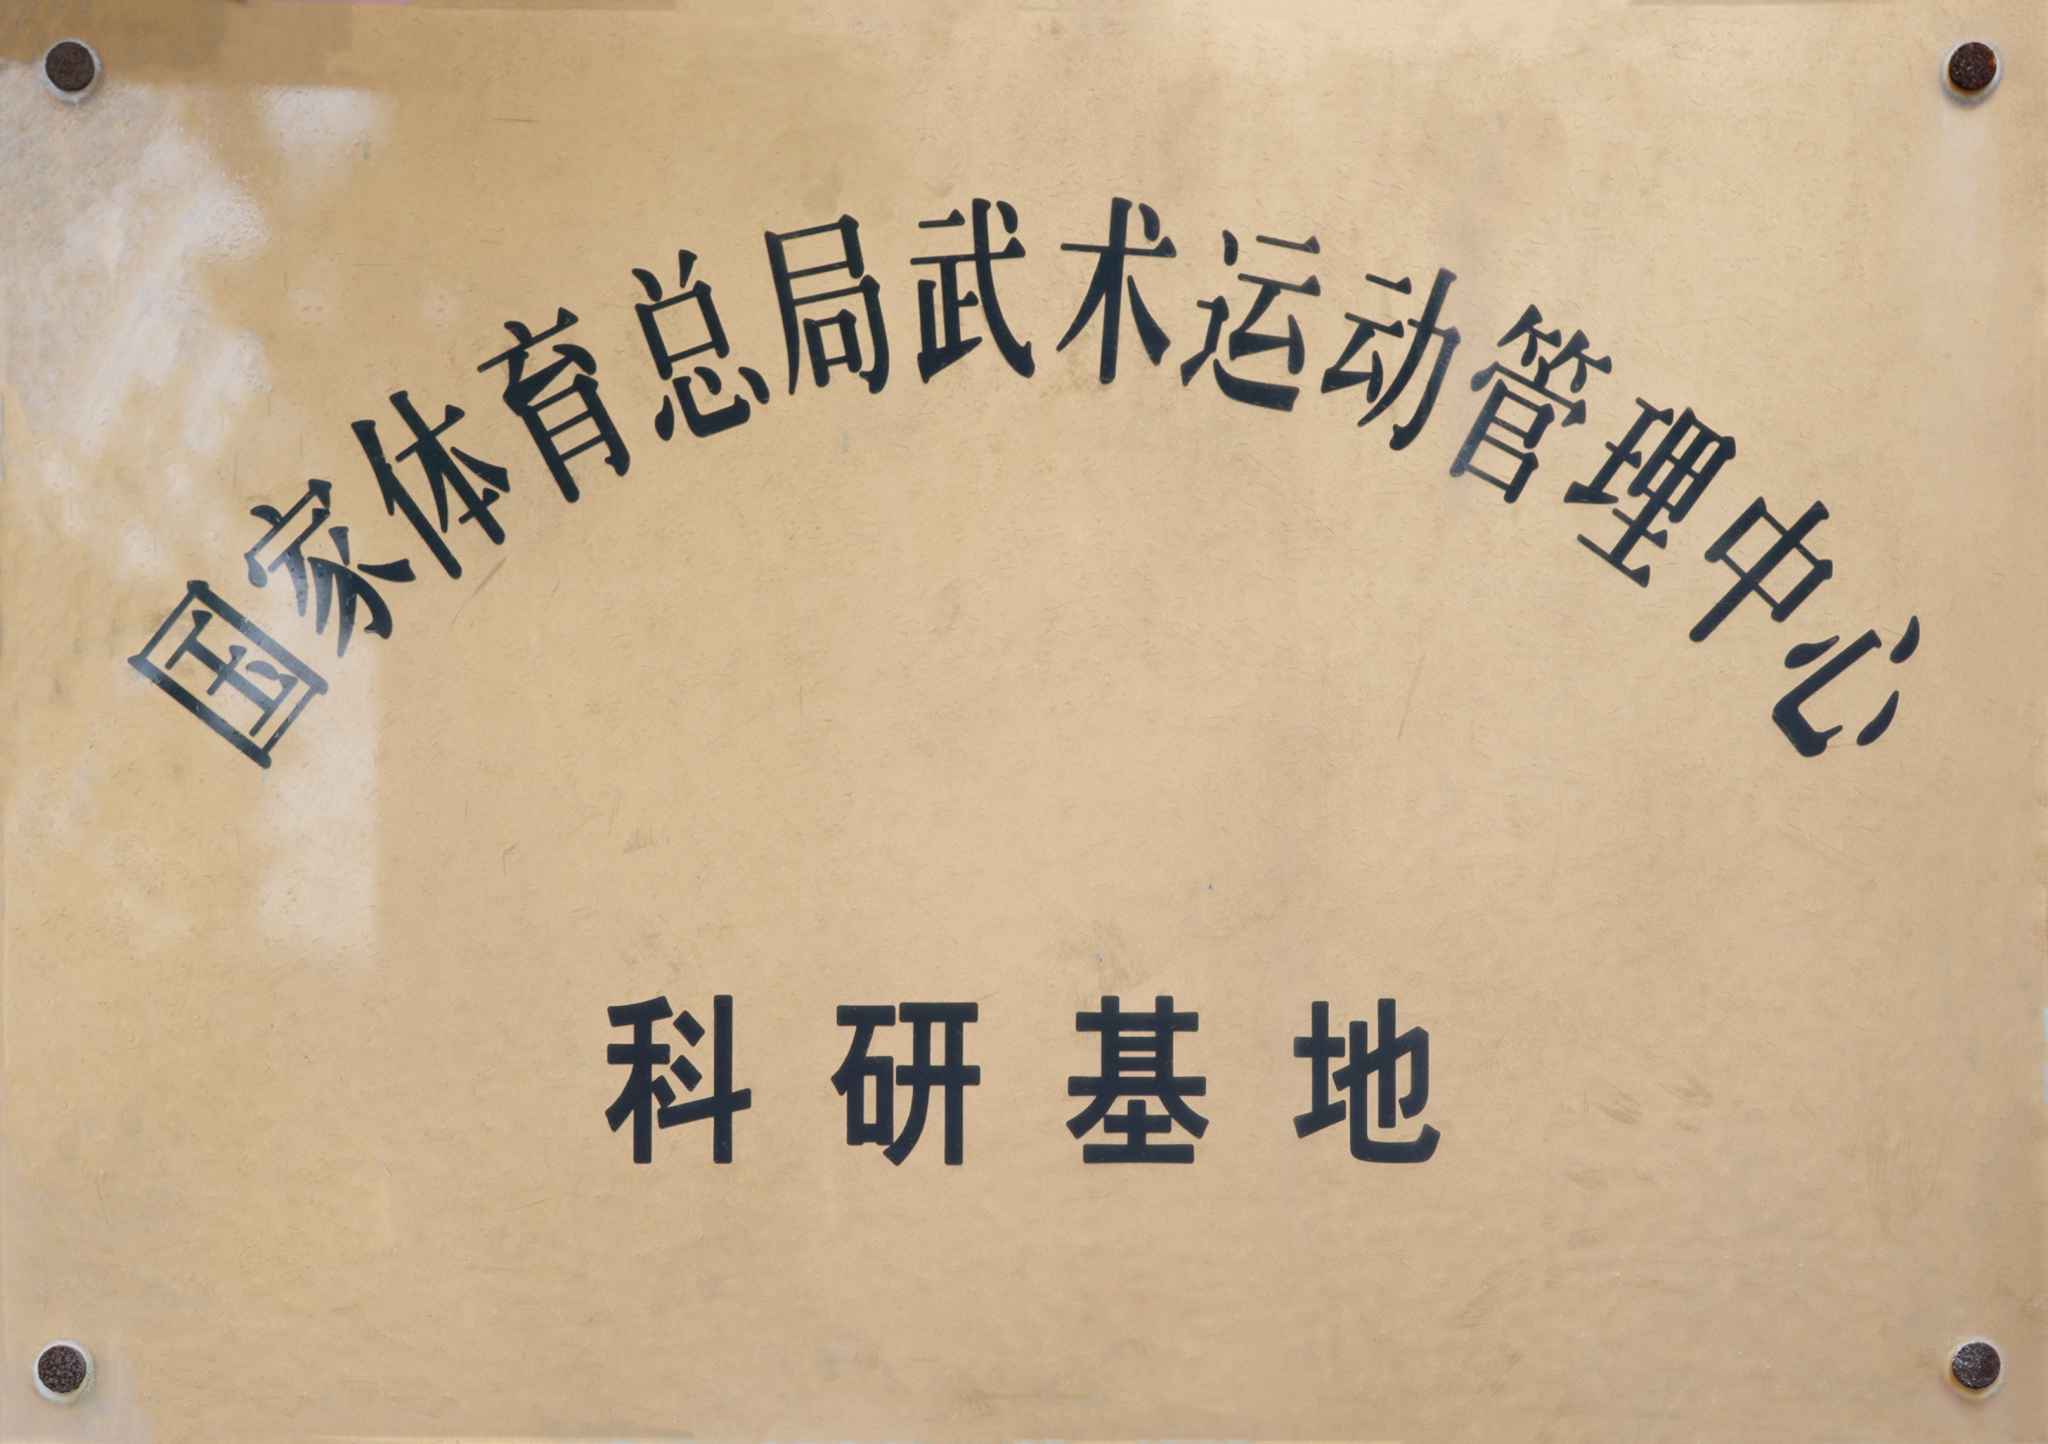 国家体育总局武术运动管理中心
科研基地